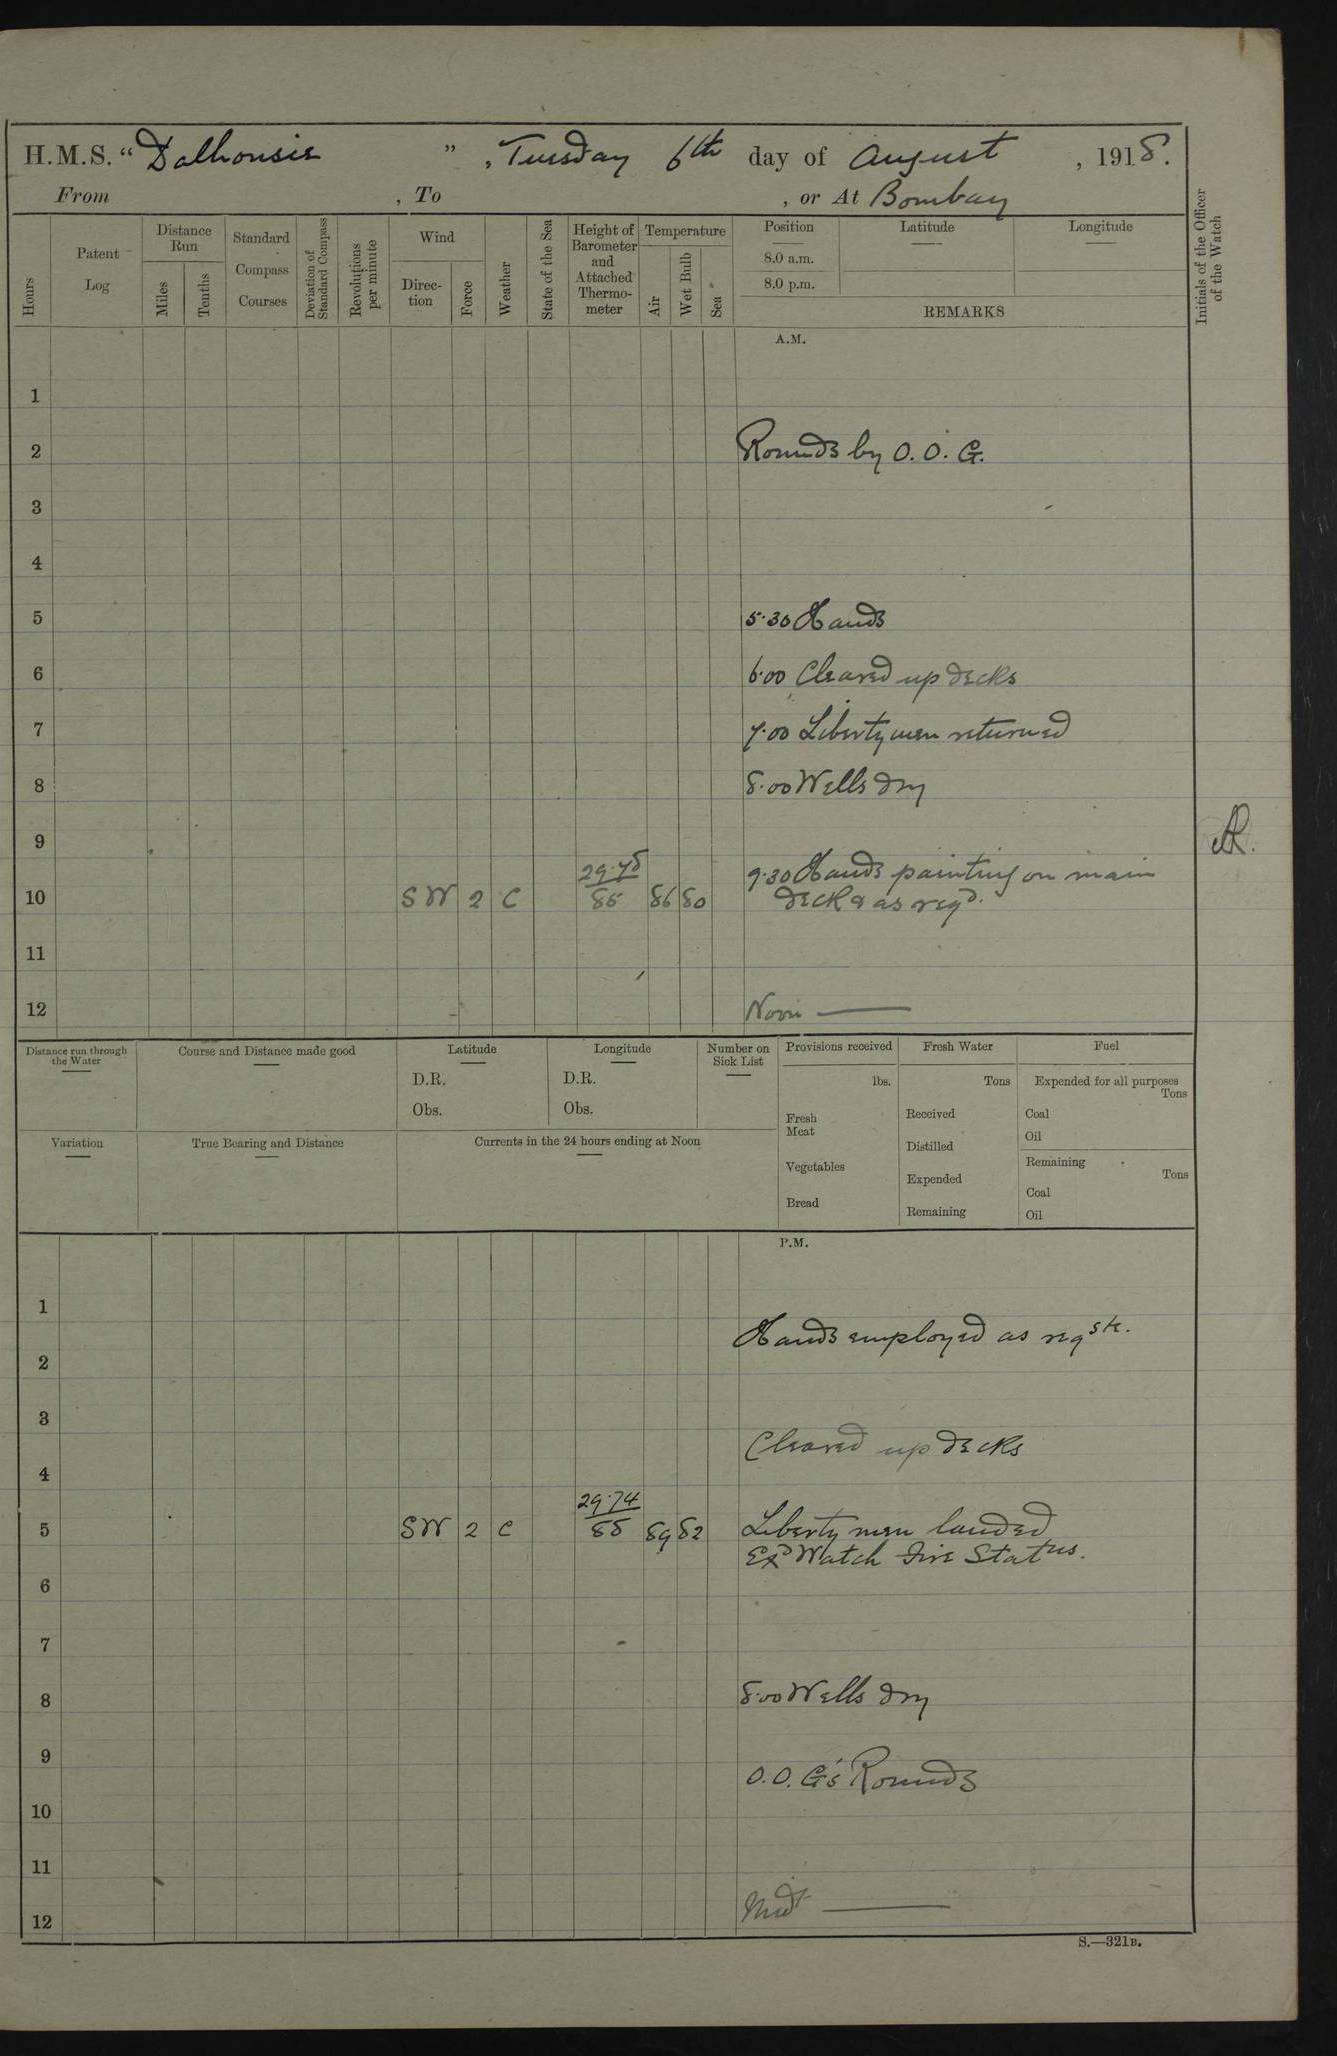 H.M.S. "Dalhousie", Tuesday 6th day of August, 1918.
From , To , or At Bombay
Hours
Patent Log
Distance Run
Miles
Tenths
Standard Compass Courses
Deviation of Standard Compass
Revolutions per minute
Wind
Direction
Force
Weather
State of the Sea
Height of Barometer and Attached Thermometer
Temperature
Air
Wet Bulb
Sea
Position
8.0 a.m.
8.0 p.m.
Latitude
Longitude
REMARKS
Initials of the Officer of the Watch
A.M.
1
2 Rounds by O.O.G.
3
4
5 5.30 Hands
6 6.00 Cleared up decks
7 7.00 Liberty men returned
8 8.00 Wells dry
9
9.30 Hands painting on main
10 SW 2 C 29.75 85 86 80 deck & as reqd.
11
12 Noon
Distance run through the Water
Course and Distance made good
Latitude
D.R.
Obs.
Longitude
D.R.
Obs.
Number on Sick List
Provisions received
lbs.
Fresh Meat
Vegetables
Bread
Fresh Water
Tons
Received
Distilled
Expended
Remaining
Fuel
Expended for all purposes
Tons
Coal
Oil
Remaining
Tons
Coal
Oil
Variation
True Bearing and Distance
Currents in the 24 hours ending at Noon
P.M.
1
Hands employed as reqste.
2
3
Cleared up decks
4
5 SW 2 C 29.74 88 89 82 Liberty men landed
Exd Watch Fire Statns.
6
7
8 8.00 Wells dry
9
O.O.G's Rounds
10
11
12 Midt
S.—321B.